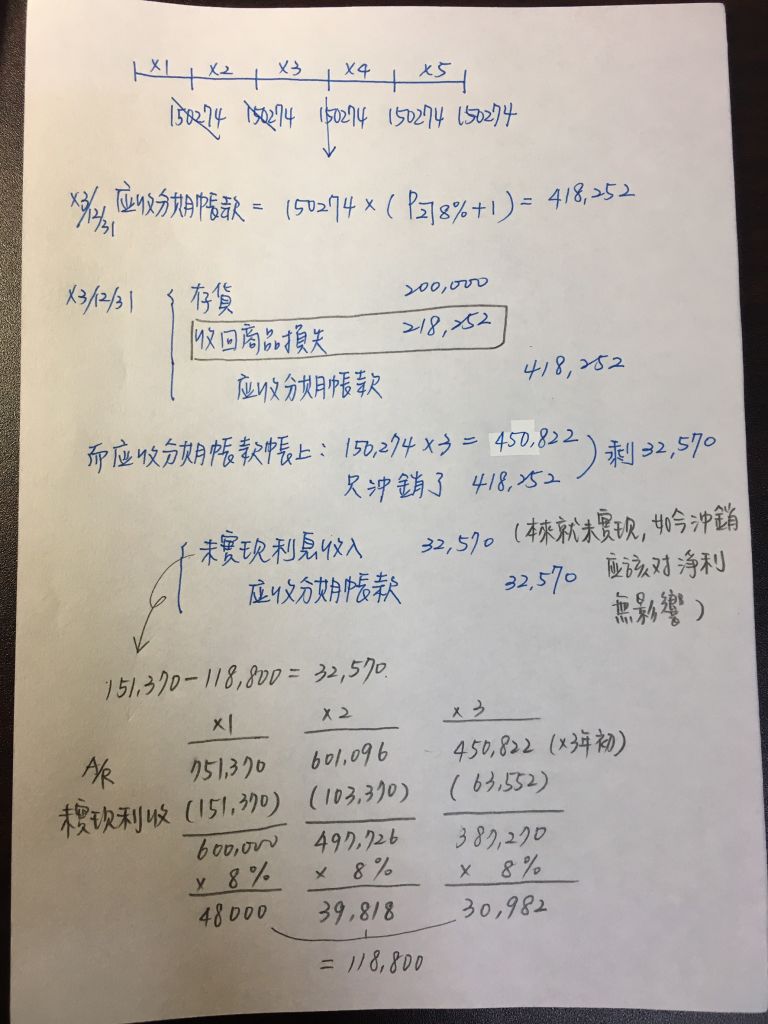 x1 x2 x3 x4 x5
150274 150274 150274 150274 150274
x3/12/31 应收分期帳款 = 150274 × (P2┐8%+1) = 418,252
x3/12/31 { 存貨 200,000
收回商品損失 218,252
应收分期帳款 418,252
而应收分期帳款帳上: 150,274 × 3 = 450,822
只沖銷了 418,252 ) 剩 32,570
{ 未實現利息收入 32,570 (本來就未實現, 如今沖銷
应收分期帳款 32,570 应該对淨利
無影響)
151,370 - 118,800 = 32,570.
x1 x2 x3
A/R 751,370 601,096 450,822 (x3年初)
未實現利收 (151,370) (103,370) (63,552)
600,000 497,726 387,270
x 8% x 8% x 8%
48000 39,818 30,982
= 118,800